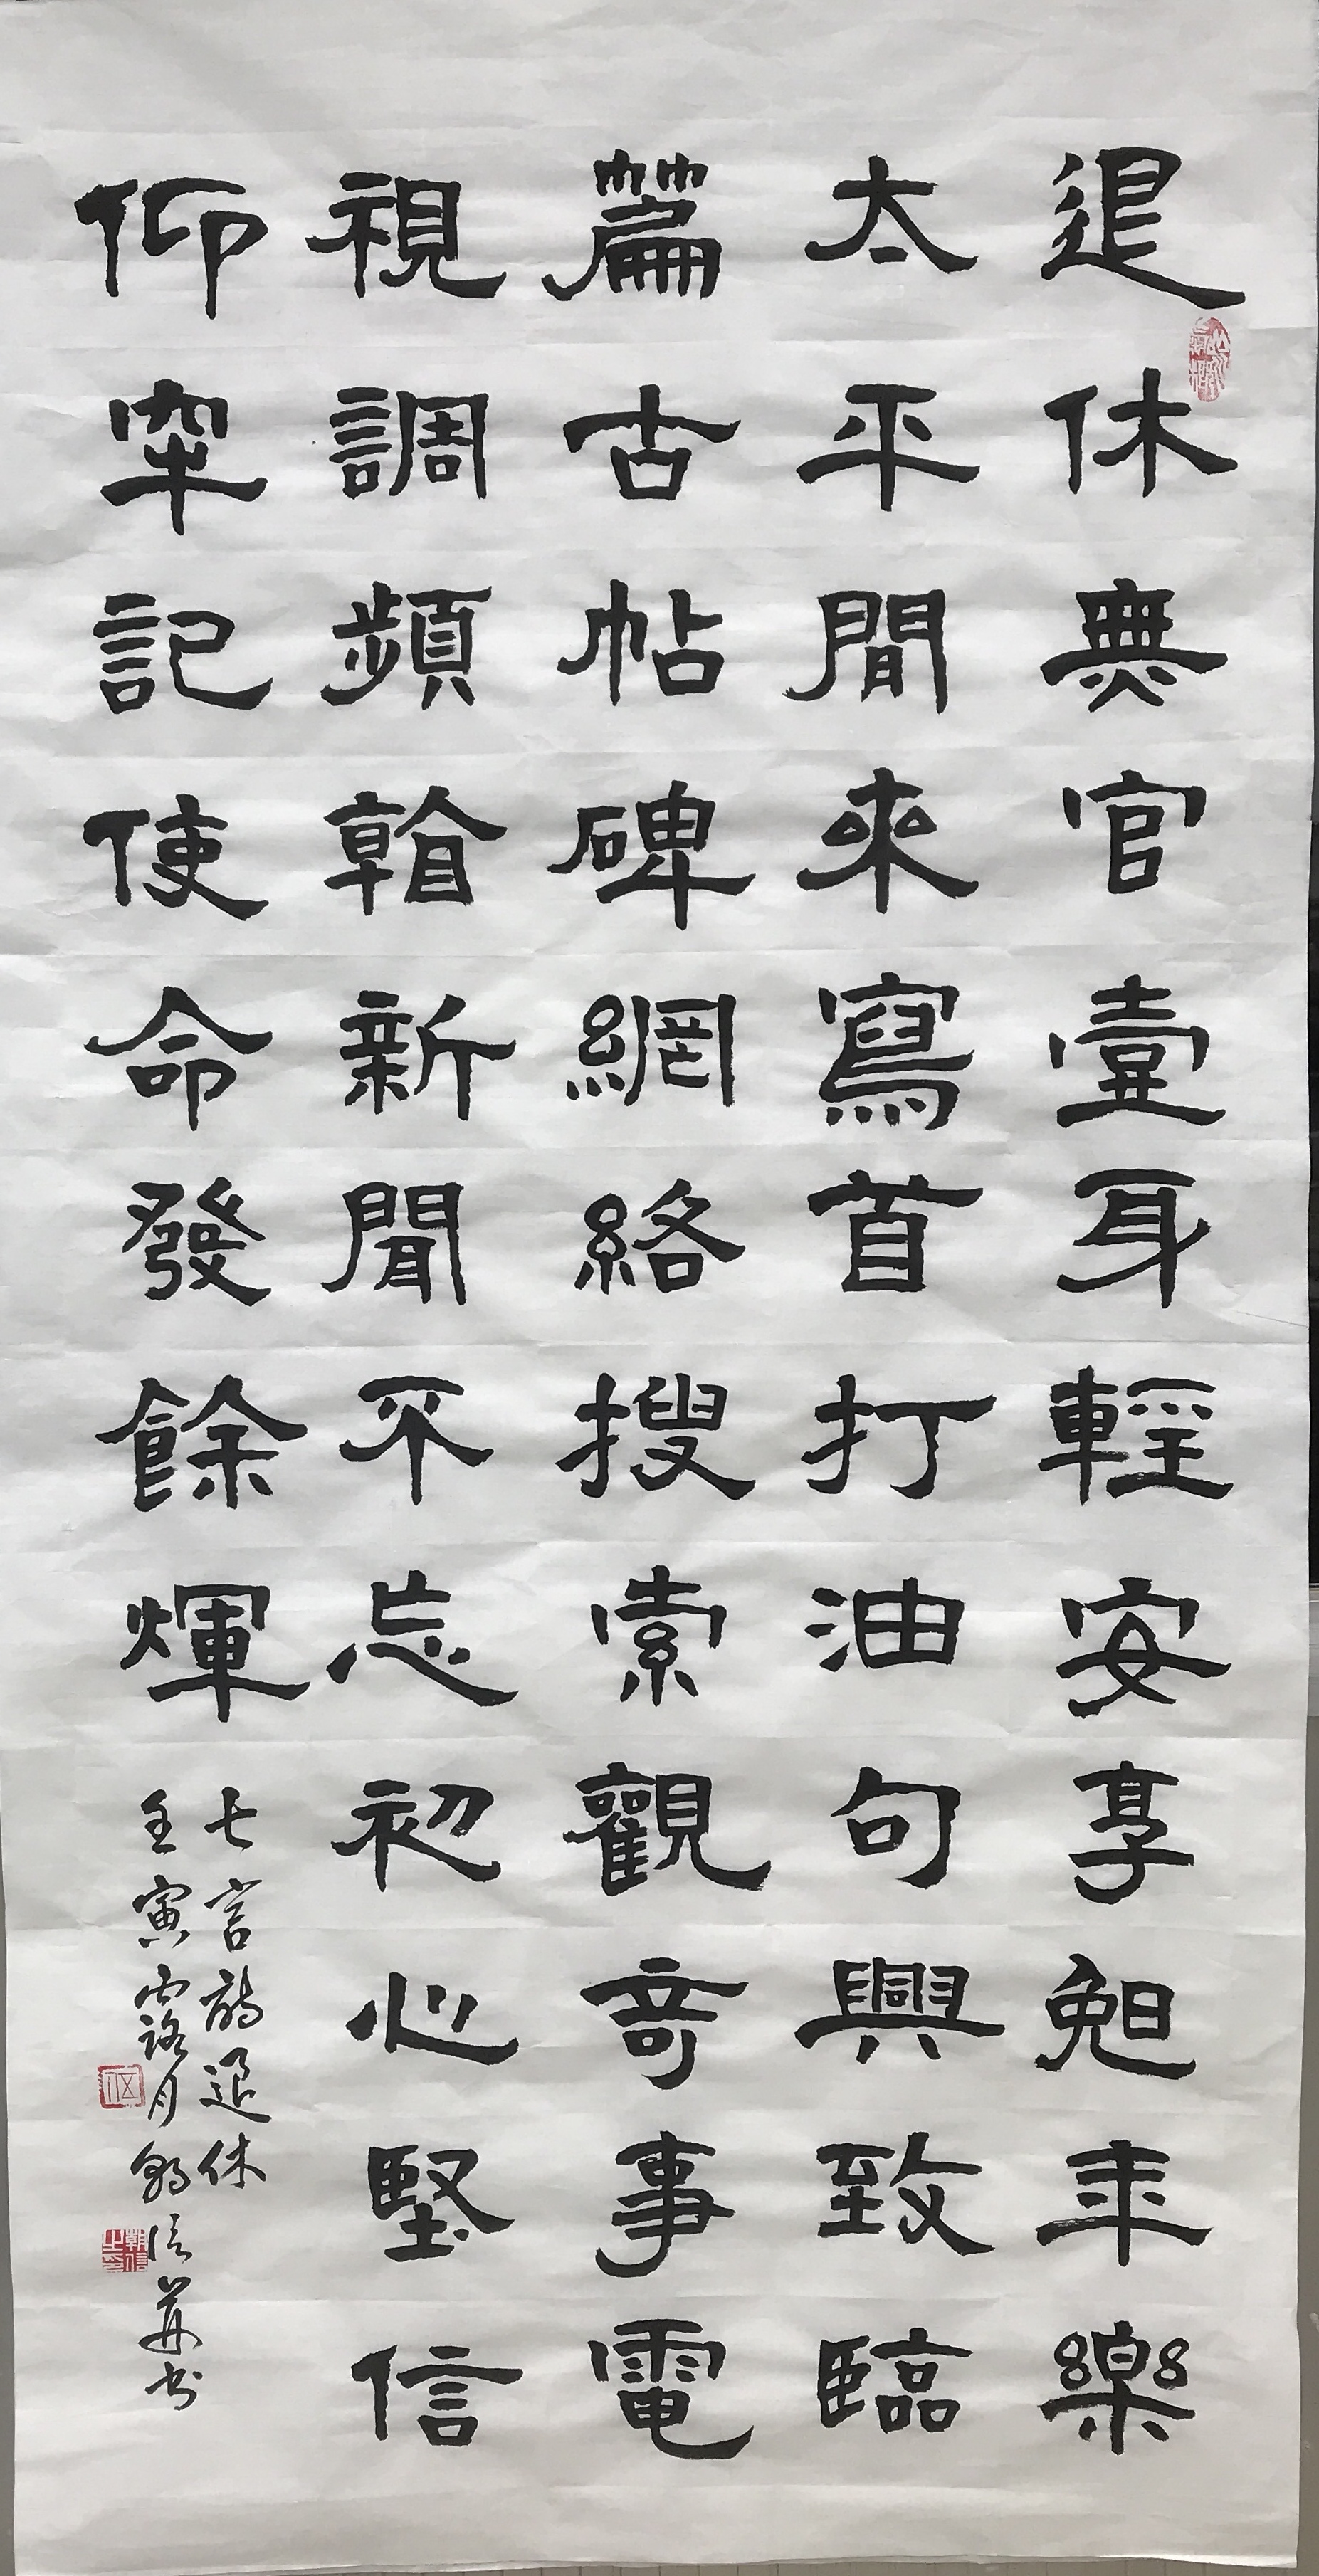 退休無官壹身輕安享晚年樂
太平閒來寫首打油句興致臨
篇古帖碑網絡搜索觀奇事電
視調頻翰新聞不忘初心堅信
仰牢記使命發餘輝
七言詩退休
壬寅露月朝信并书
朝信之印